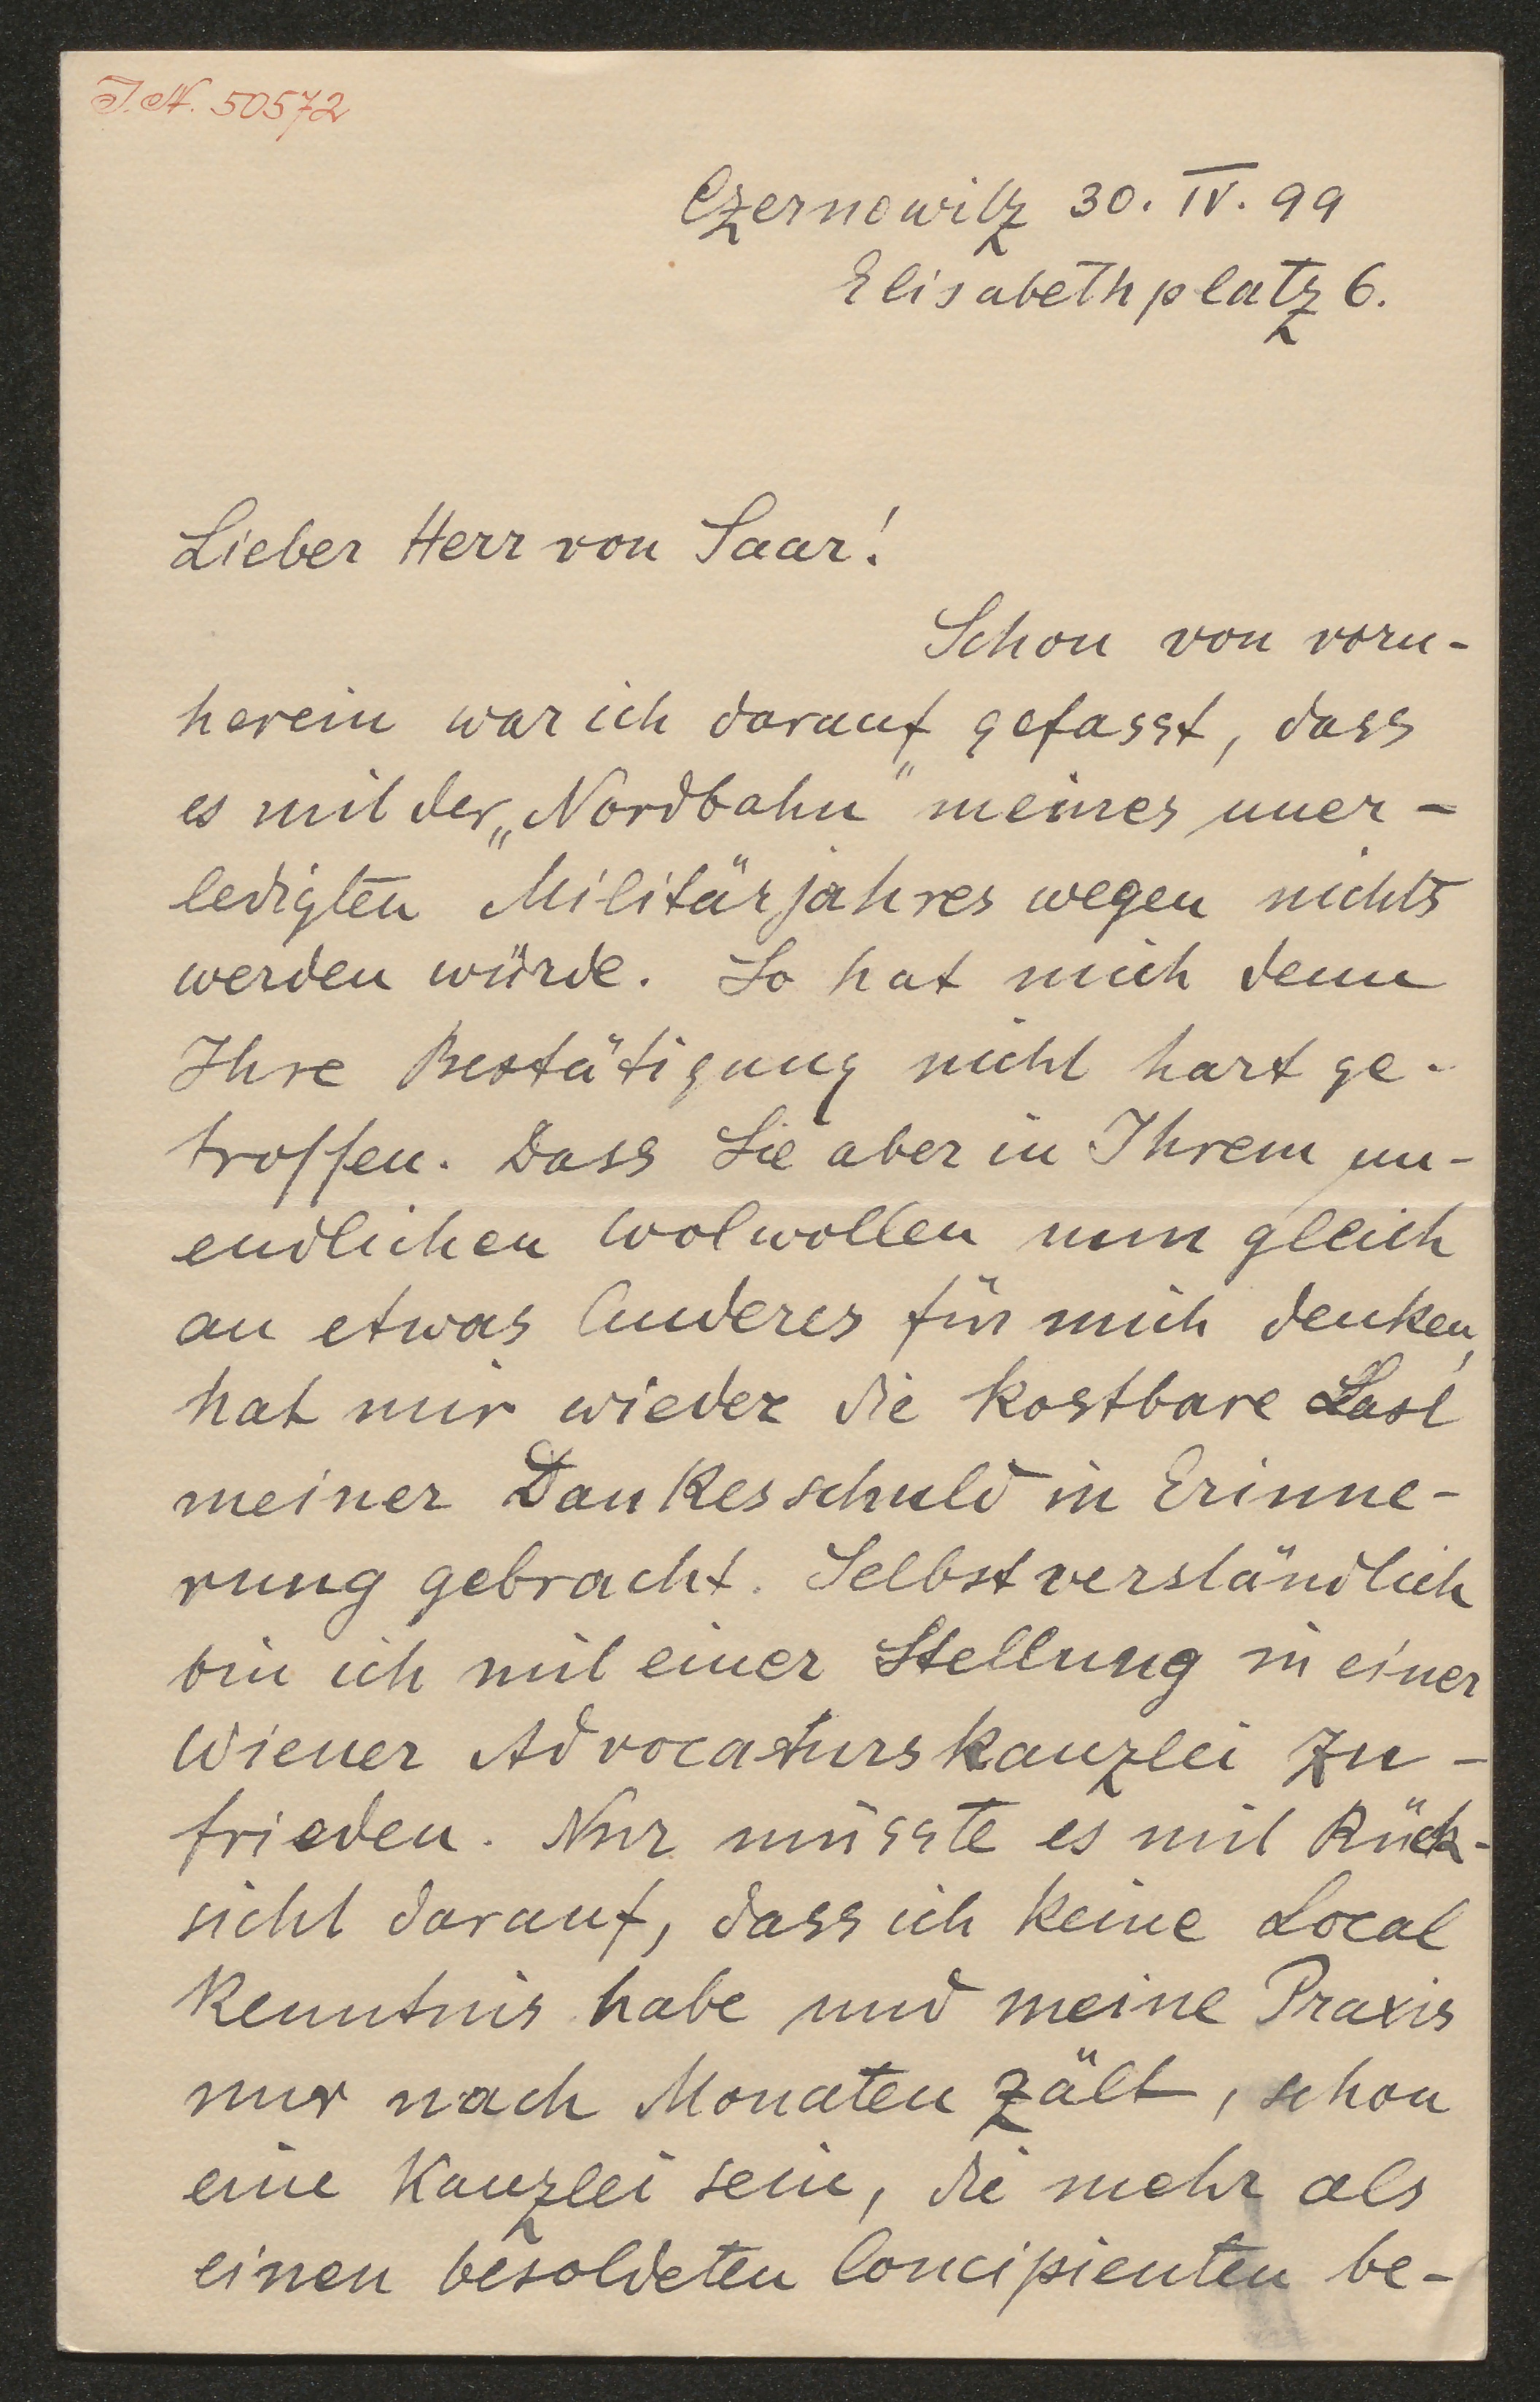 J.N. 50572
Czernowitz 30. IV. 99
Elisabethplatz 6.
Lieber Herr von Saar!
Schon von vorn-
herein war ich darauf gefasst, dass
es mit der „Nordbahn“ meines uner-
ledigten Militärjahres wegen nichts
werden würde. So hat mich denn
Ihre Bestätigung nicht hart ge-
troffen. Dass Sie aber in Ihrem un-
endlichen Wolwollen nun gleich
an etwas Anderes für mich denken,
hat mir wieder die kostbare Last
meiner Dankesschuld in Erinne-
rung gebracht. Selbstverständlich
bin ich mit einer Stellung in einer
Wiener Advocaturskanzlei zu-
frieden. Nur müsste es mit Rück-
sicht darauf, dass ich keine Local
Kenntnis habe und meine Praxis
nur nach Monaten zält, schon
eine Kanzlei sein, die mehr als
einen besoldeten Concipienten be-